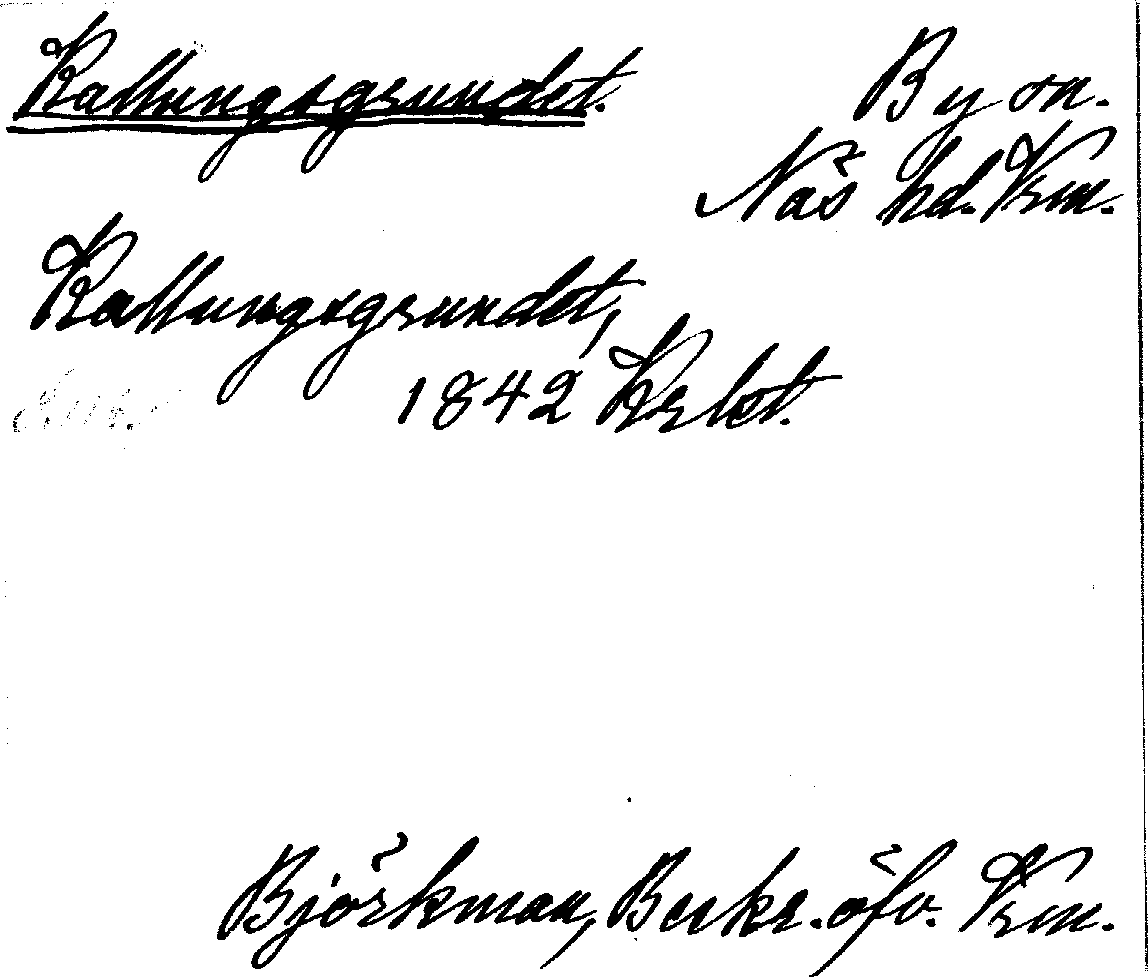 Kallungsgrundet. By sn.
Näs hd. Vrm.
Kallungsgrundet,
1842 Krlst.
Björkman, Beskr. öfv. Vrm.